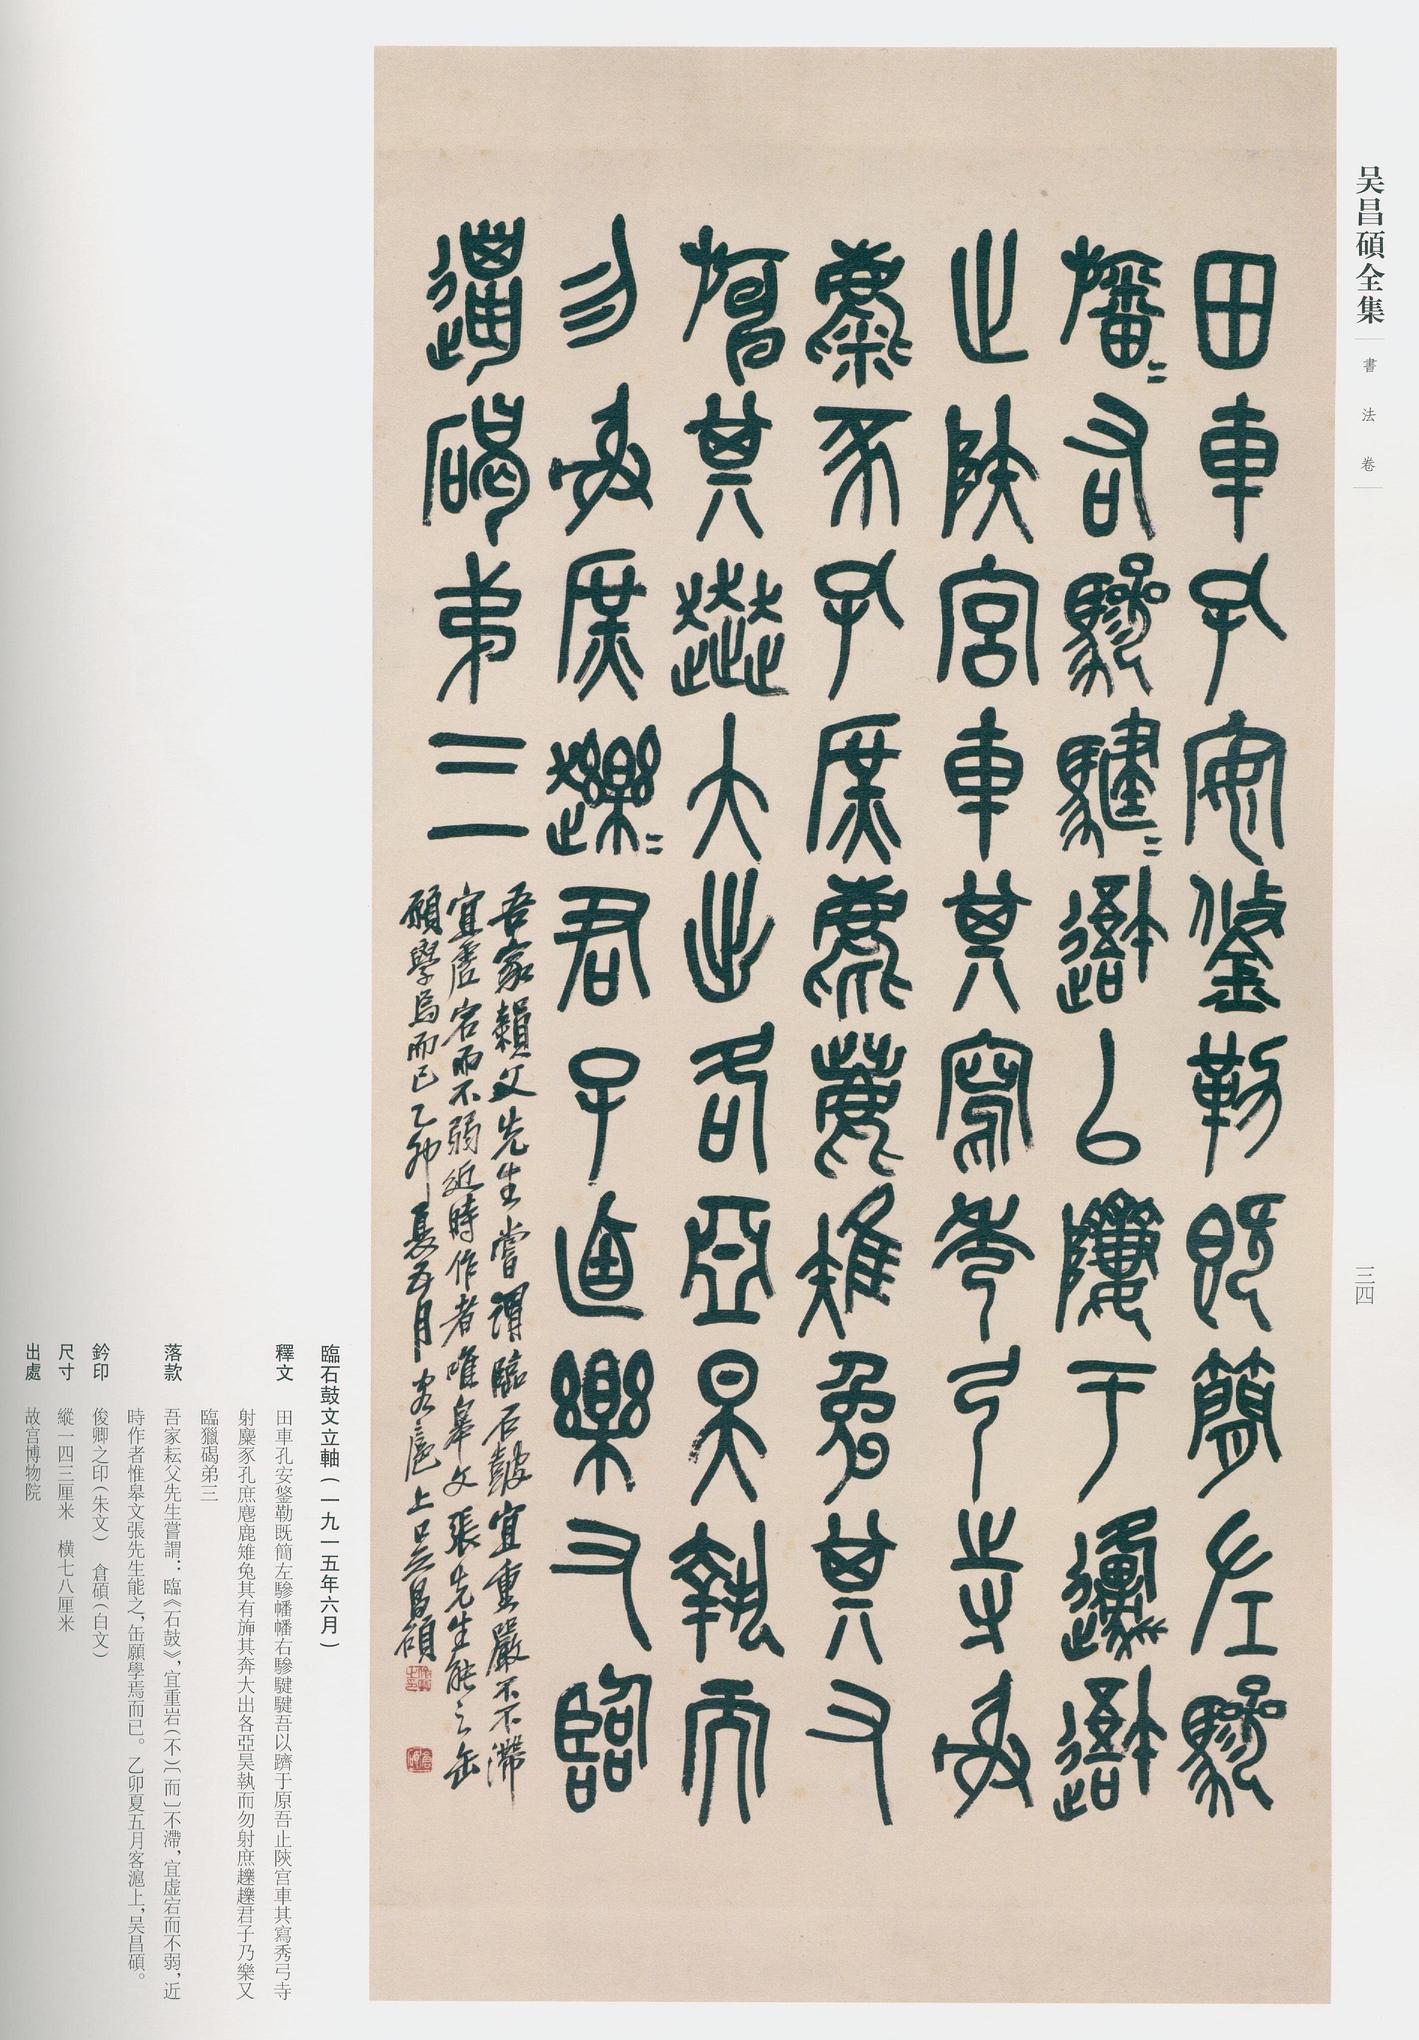 吴昌碩全集
書法卷
三四
田車孔安鋚勒既簡左驂
旛=右驂騝=吾以隮于原吾
止陝宮車其寫秀弓寺射
麋豕孔庶麀鹿雉兔其又
旃其奔大出各亞昊執而
勿射庶趮=君子迺樂又臨
獵碣弟三
吾家頛父先生嘗謂臨石鼓宜重嚴不不滯
宜虛宕而不弱近時作者唯皋文張先生能之缶
願學焉而已乙卯夏五月客滬上吳昌碩
臨石鼓文立軸(一九一五年六月)
釋文　田車孔安鋚勒既簡左驂幡幡右驂騝騝吾以隮于原吾止陝宫車其寫秀弓寺
射麋豕孔庶麀鹿雉兔其有旃其奔大出各亞昊執而勿射庶趮趮君子乃樂又
臨獵碣弟三
落款　吾家耘父先生嘗謂：臨《石鼓》，宜重岩(不)〔而〕不滯，宜虛宕而不弱，近
時作者惟皋文張先生能之，缶願學焉而已。乙卯夏五月客滬上，吴昌碩。
鈐印　俊卿之印(朱文)　倉碩(白文)
尺寸　縱一四三厘米　横七八厘米
出處　故宫博物院